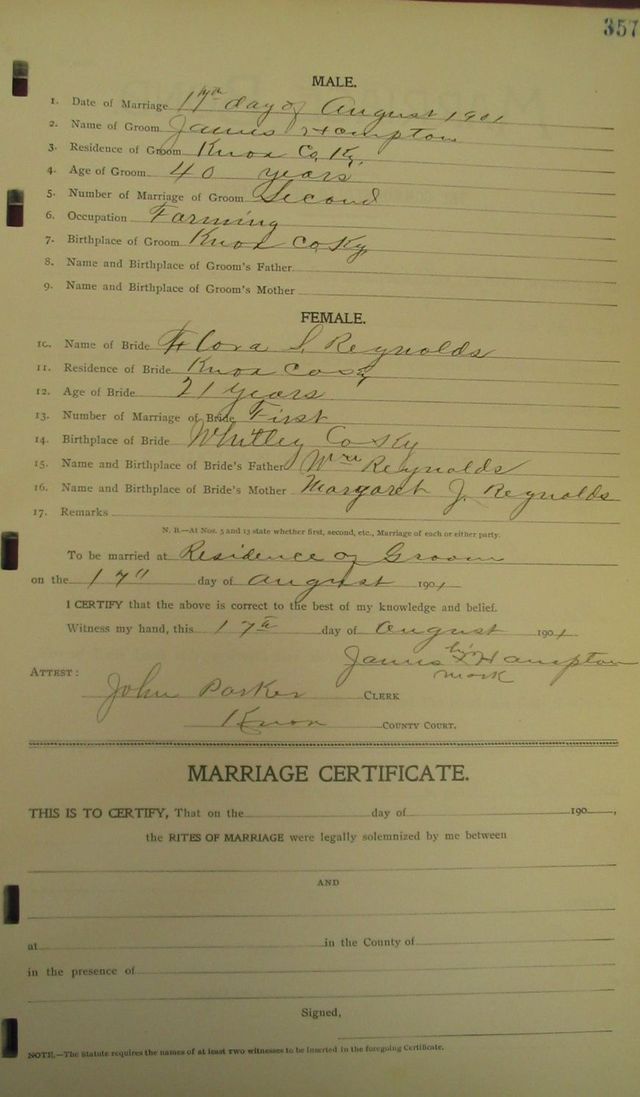 357
MALE.
1. Date of Marriage 17th day of August 1901
2. Name of Groom James Hampton
3. Residence of Groom Knox Co, Ky,
4. Age of Groom 40 years
5. Number of Marriage of Groom Second
6. Occupation Farming
7. Birthplace of Groom Knox Co Ky
8. Name and Birthplace of Groom's Father
9. Name and Birthplace of Groom's Mother
FEMALE.
10. Name of Bride Flora S. Reynolds
11. Residence of Bride Knox Co
12. Age of Bride 21 years
13. Number of Marriage of Bride First
14. Birthplace of Bride Whitley Co Ky
15. Name and Birthplace of Bride's Father Wm Reynolds
16. Name and Birthplace of Bride's Mother Margaret J. Reynolds
17. Remarks
N. B.—At Nos. 5 and 13 state whether first, second, etc., Marriage of each or either party.
To be married at Residence of Groom
on the 17" day of August 1901
I CERTIFY that the above is correct to the best of my knowledge and belief.
Witness my hand, this 17th day of August 1901
his
James x Hampton
mark
ATTEST:
John Parker CLERK
Knox COUNTY COURT.
MARRIAGE CERTIFICATE.
THIS IS TO CERTIFY, That on the day of 190 ,
the RITES OF MARRIAGE were legally solemnized by me between
AND
at in the County of
in the presence of
Signed,
NOTE.—The Statute requires the names of at least two witnesses to be inserted in the foregoing Certificate.